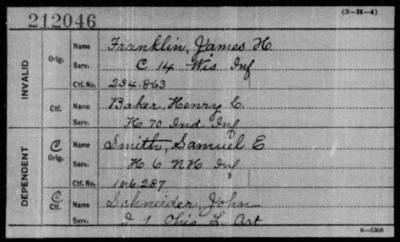 212046
(3-H-4)
INVALID
Orig.
Name Franklin, James H
Serv. C. 14 Wis Inf
Ctf. No. 234.863
Ctf.
Name Baker, Henry C.
Serv. H 70 Ind Inf
DEPENDENT
C Orig.
Name Smith, Samuel E
Serv. H 6 NH Inf
Ctf. No. 106287
C Ctf.
Name Schneider, John
Serv. I 1 Ohio L. Art